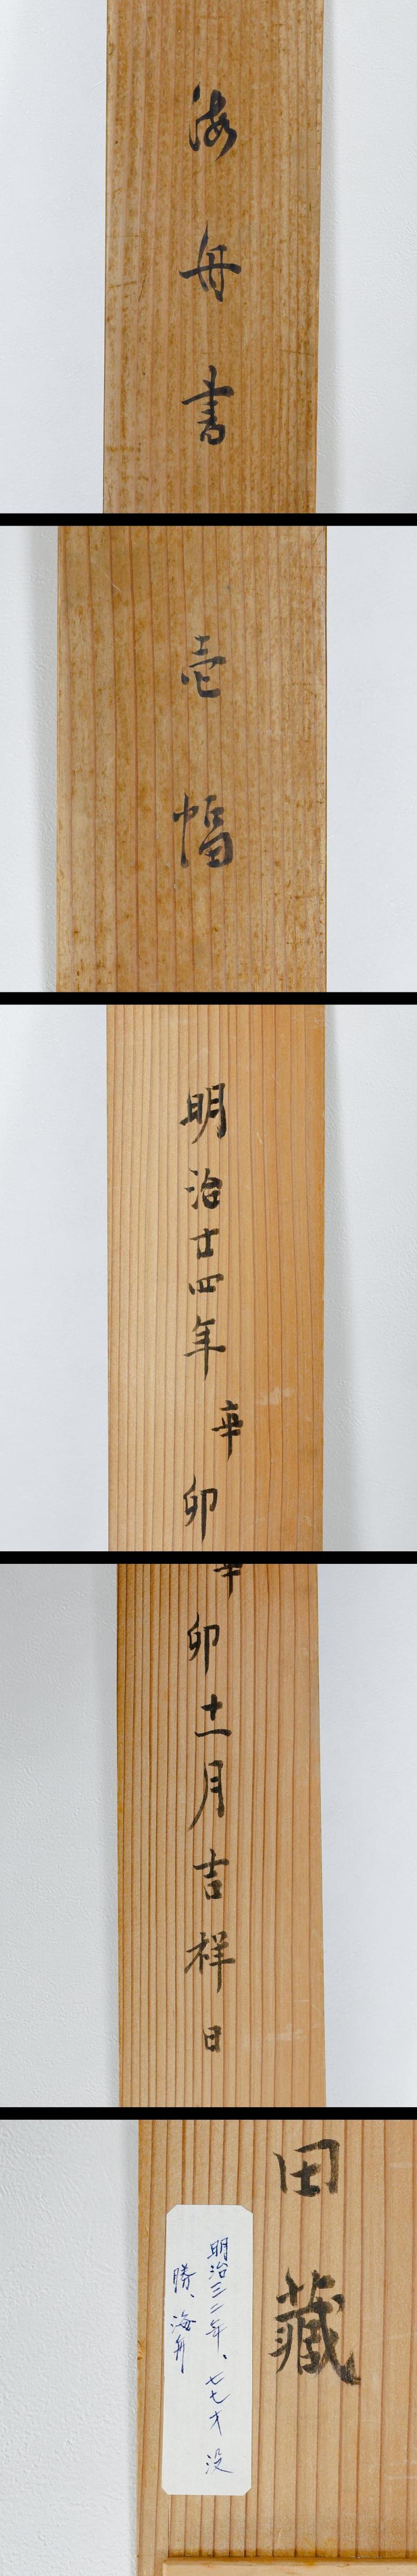 海舟書
壱幅
明治廿四年辛卯
辛卯十一月吉祥日
田蔵
明治三二年、七七才没
勝、海舟